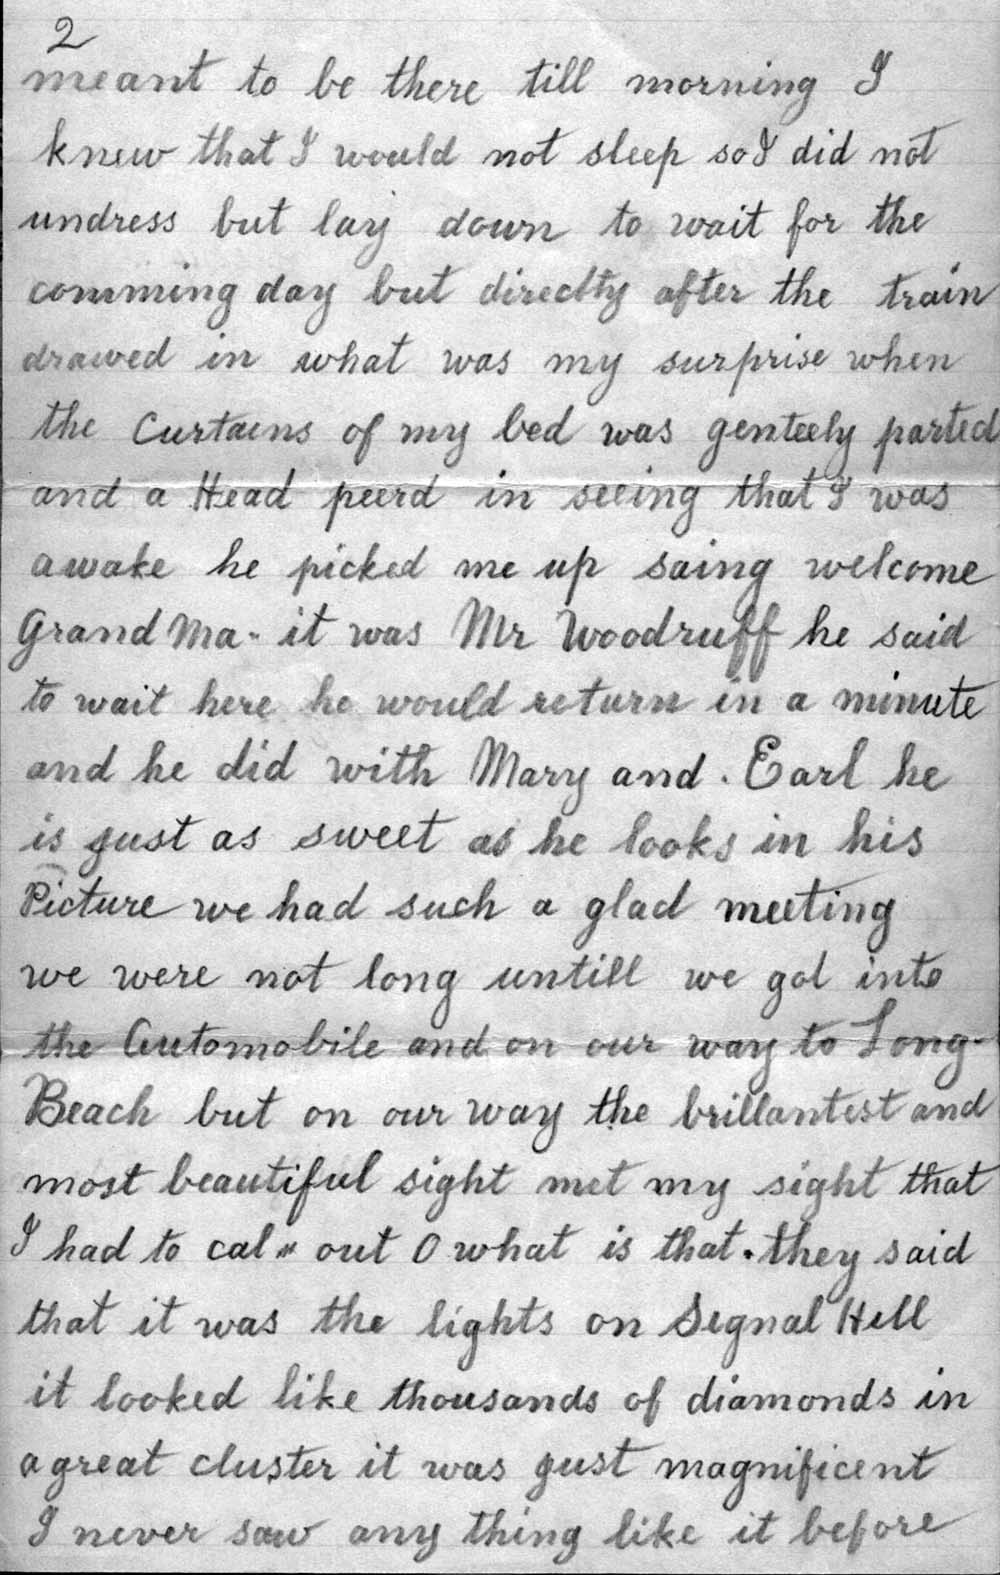 2
meant to be there till morning I
knew that I would not sleep so I did not
undress but lay down to wait for the
comming day but directty after the train
drawed in what was my surprise when
the Curtains of my bed was genteely parted
and a Head peerd in seeing that I was
awake he picked me up saing welcome
Grand Ma - it was Mr Woodruff he said
to wait here he would return in a minute
and he did with Mary and . Earl he
is just as sweet as he looks in his
Picture we had such a glad meeting
we were not long untill we got into
the Automobile and on our way to Long-
Beach but on our way the brillantest and
most beautiful sight met my sight that
I had to cal " out O what is that . they said
that it was the lights on Segnal Hell
it looked like thousands of diamonds in
a great cluster it was just magnificent
I never saw any thing like it before